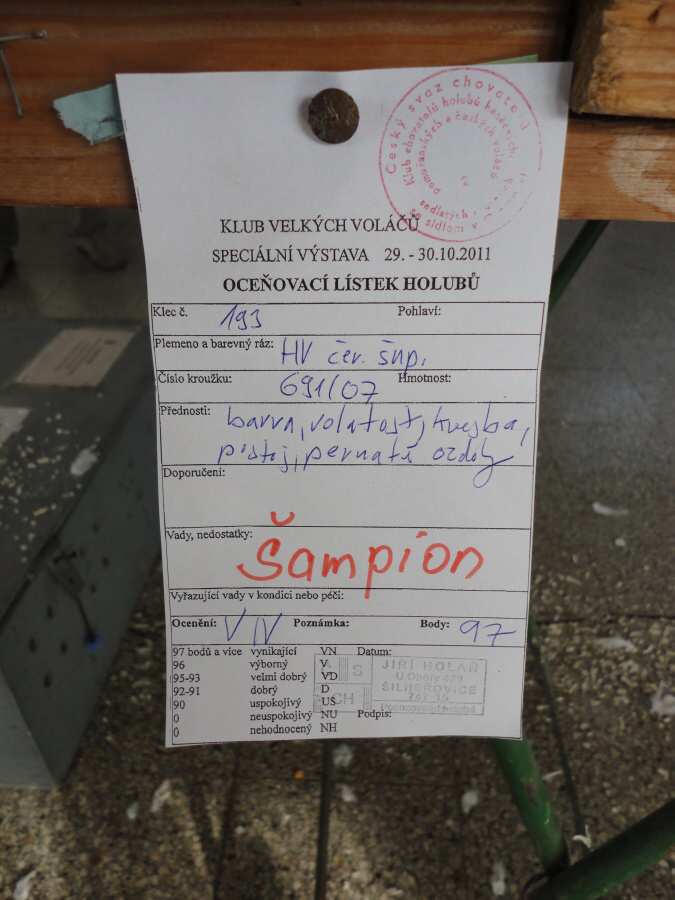 Český svaz chovatelů
Klub chovatelů holubů
pomořanských a českých voláčů
se sídlem v
KLUB VELKÝCH VOLÁČŮ
SPECIÁLNÍ VÝSTAVA 29. - 30.10.2011
OCEŇOVACÍ LÍSTEK HOLUBŮ
Klec č. 193 Pohlaví:
Plemeno a barevný ráz: HV čer. šup.
Číslo kroužku: 691/07 Hmotnost:
Přednosti: barva, volatost, kresba,
postoj, pernaté ozdoby
Doporučení:
Vady, nedostatky: Šampion
Vyřazující vady v kondici nebo péči:
Ocenění: VN Poznámka: Body: 97
97 bodů a více vynikající VN Datum:
96 výborný V
95-93 velmi dobrý VD
92-91 dobrý D
90 uspokojivý US
0 neuspokojivý NU Podpis:
0 nehodnocený NH
JIŘÍ HOLAŇ
U Obory 429
ŠILHEŘOVICE